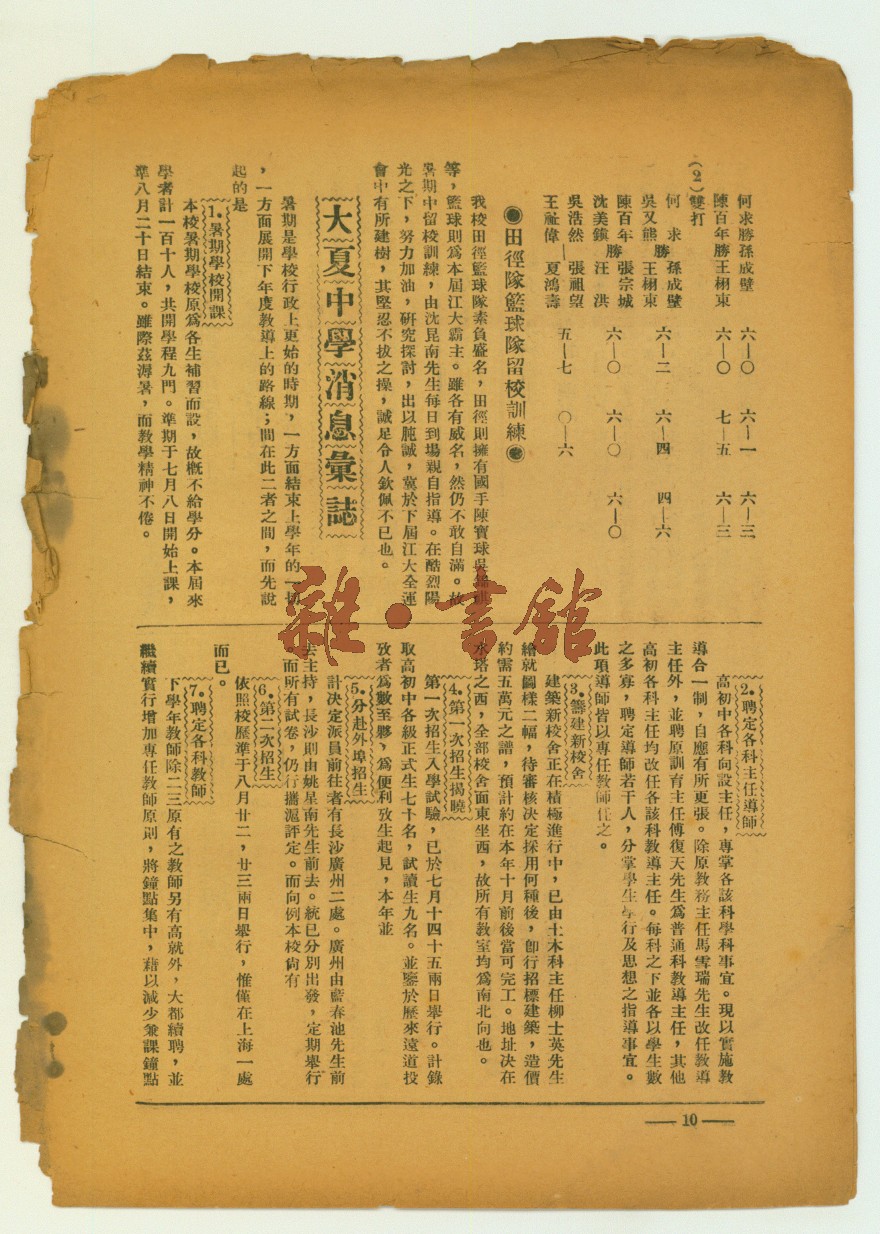 何求勝孫成璧　六—〇　六—一　六—三
陳百年勝王栩東　六—〇　七—五　六—三
(2)雙打
何　求勝孫成璧
吳又熊　王栩東　六—二　六—四　四—六
陳百年勝張宗城
沈美鎮　汪　洪　六—〇　六—〇　六—〇
吳浩然—張祖望
王祉偉　夏鴻壽　五—七　〇—六
●田徑隊籃球隊留校訓練●
我校田徑籃球隊素負盛名，田徑則擁有國手陳寶球吳
等，籃球則爲本屆江大霸主。雖各有威名，然仍不敢自滿。故
暑期中留校訓練，由沈昆南先生每日到場親自指導。在酷烈陽
光之下，努力加油，研究探討，出以肫誠，冀於下屆江大全運
會中有所建樹，其堅忍不拔之操，誠足令人欽佩不已也。
大夏中學消息彙誌
暑期是學校行政上更始的時期，一方面結束上學年的一切
，一方面展開下年度教導上的路線；間在此二者之間，而先說
起的是
1.暑期學校開課
本校暑期學校原爲各生補習而設，故概不給學分。本屆來
學者計一百十人，共開學程九門。準期于七月八日開始上課，
準八月二十日結束。雖際茲溽暑，而教學精神不倦。
2.聘定各科主任導師
高初中各科向設主任，專掌各該科學科事宜。現以實施教
導合一制，自應有所更張。除原教務主任馬雪瑞先生改任教導
主任外，並聘原訓育主任傅復天先生爲普通科教導主任，其他
高初各科主任均改任各該科教導主任。每科之下並各以學生數
之多寡，聘定導師若干人，分掌學生學行及思想之指導事宜。
此項導師皆以專任教師任之。
3.籌建新校舍
建築新校舍正在積極進行中，已由土木科主任柳士英先生
繪就圖樣二幅，待審核決定採用何種後，卽行招標建築，造價
約需五萬元之譜，預計約在本年十月前後當可完工。地址決在
水塔之西，全部校舍面東坐西，故所有教室均爲南北向也。
4.第一次招生揭曉
第一次招生入學試驗，已於七月十四十五兩日舉行。計錄
取高初中各級正式生七十名，試讀生九名。並鑒於歷來遠道投
攷者爲數至夥，爲便利攷生起見，本年並
5.分赴外埠招生
計決定派員前往者有長沙廣州二處。廣州由藍春池先生前
去主持，長沙則由姚星南先生前去。統已分別出發，定期舉行
。而所有試卷，仍行攜滬評定。而向例本校尙有
6.第二次招生
依照校歷準于八月廿二，廿三兩日舉行，惟僅在上海一處
而已。
7.聘定各科教師
下學年教師除二三原有之教師另有高就外，大都續聘，並
繼續實行增加専任教師原則，將鐘點集中，藉以減少兼課鐘點
—10—
雜·書館